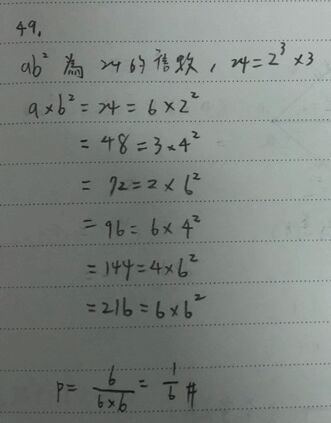 49.
ab² 為 24 的倍數，24=2³×3
a×b²=24=6×2²
=48=3×4²
=72=2×6²
=96=6×4²
=144=4×6²
=216=6×6²
P=6/(6×6)=1/6 #